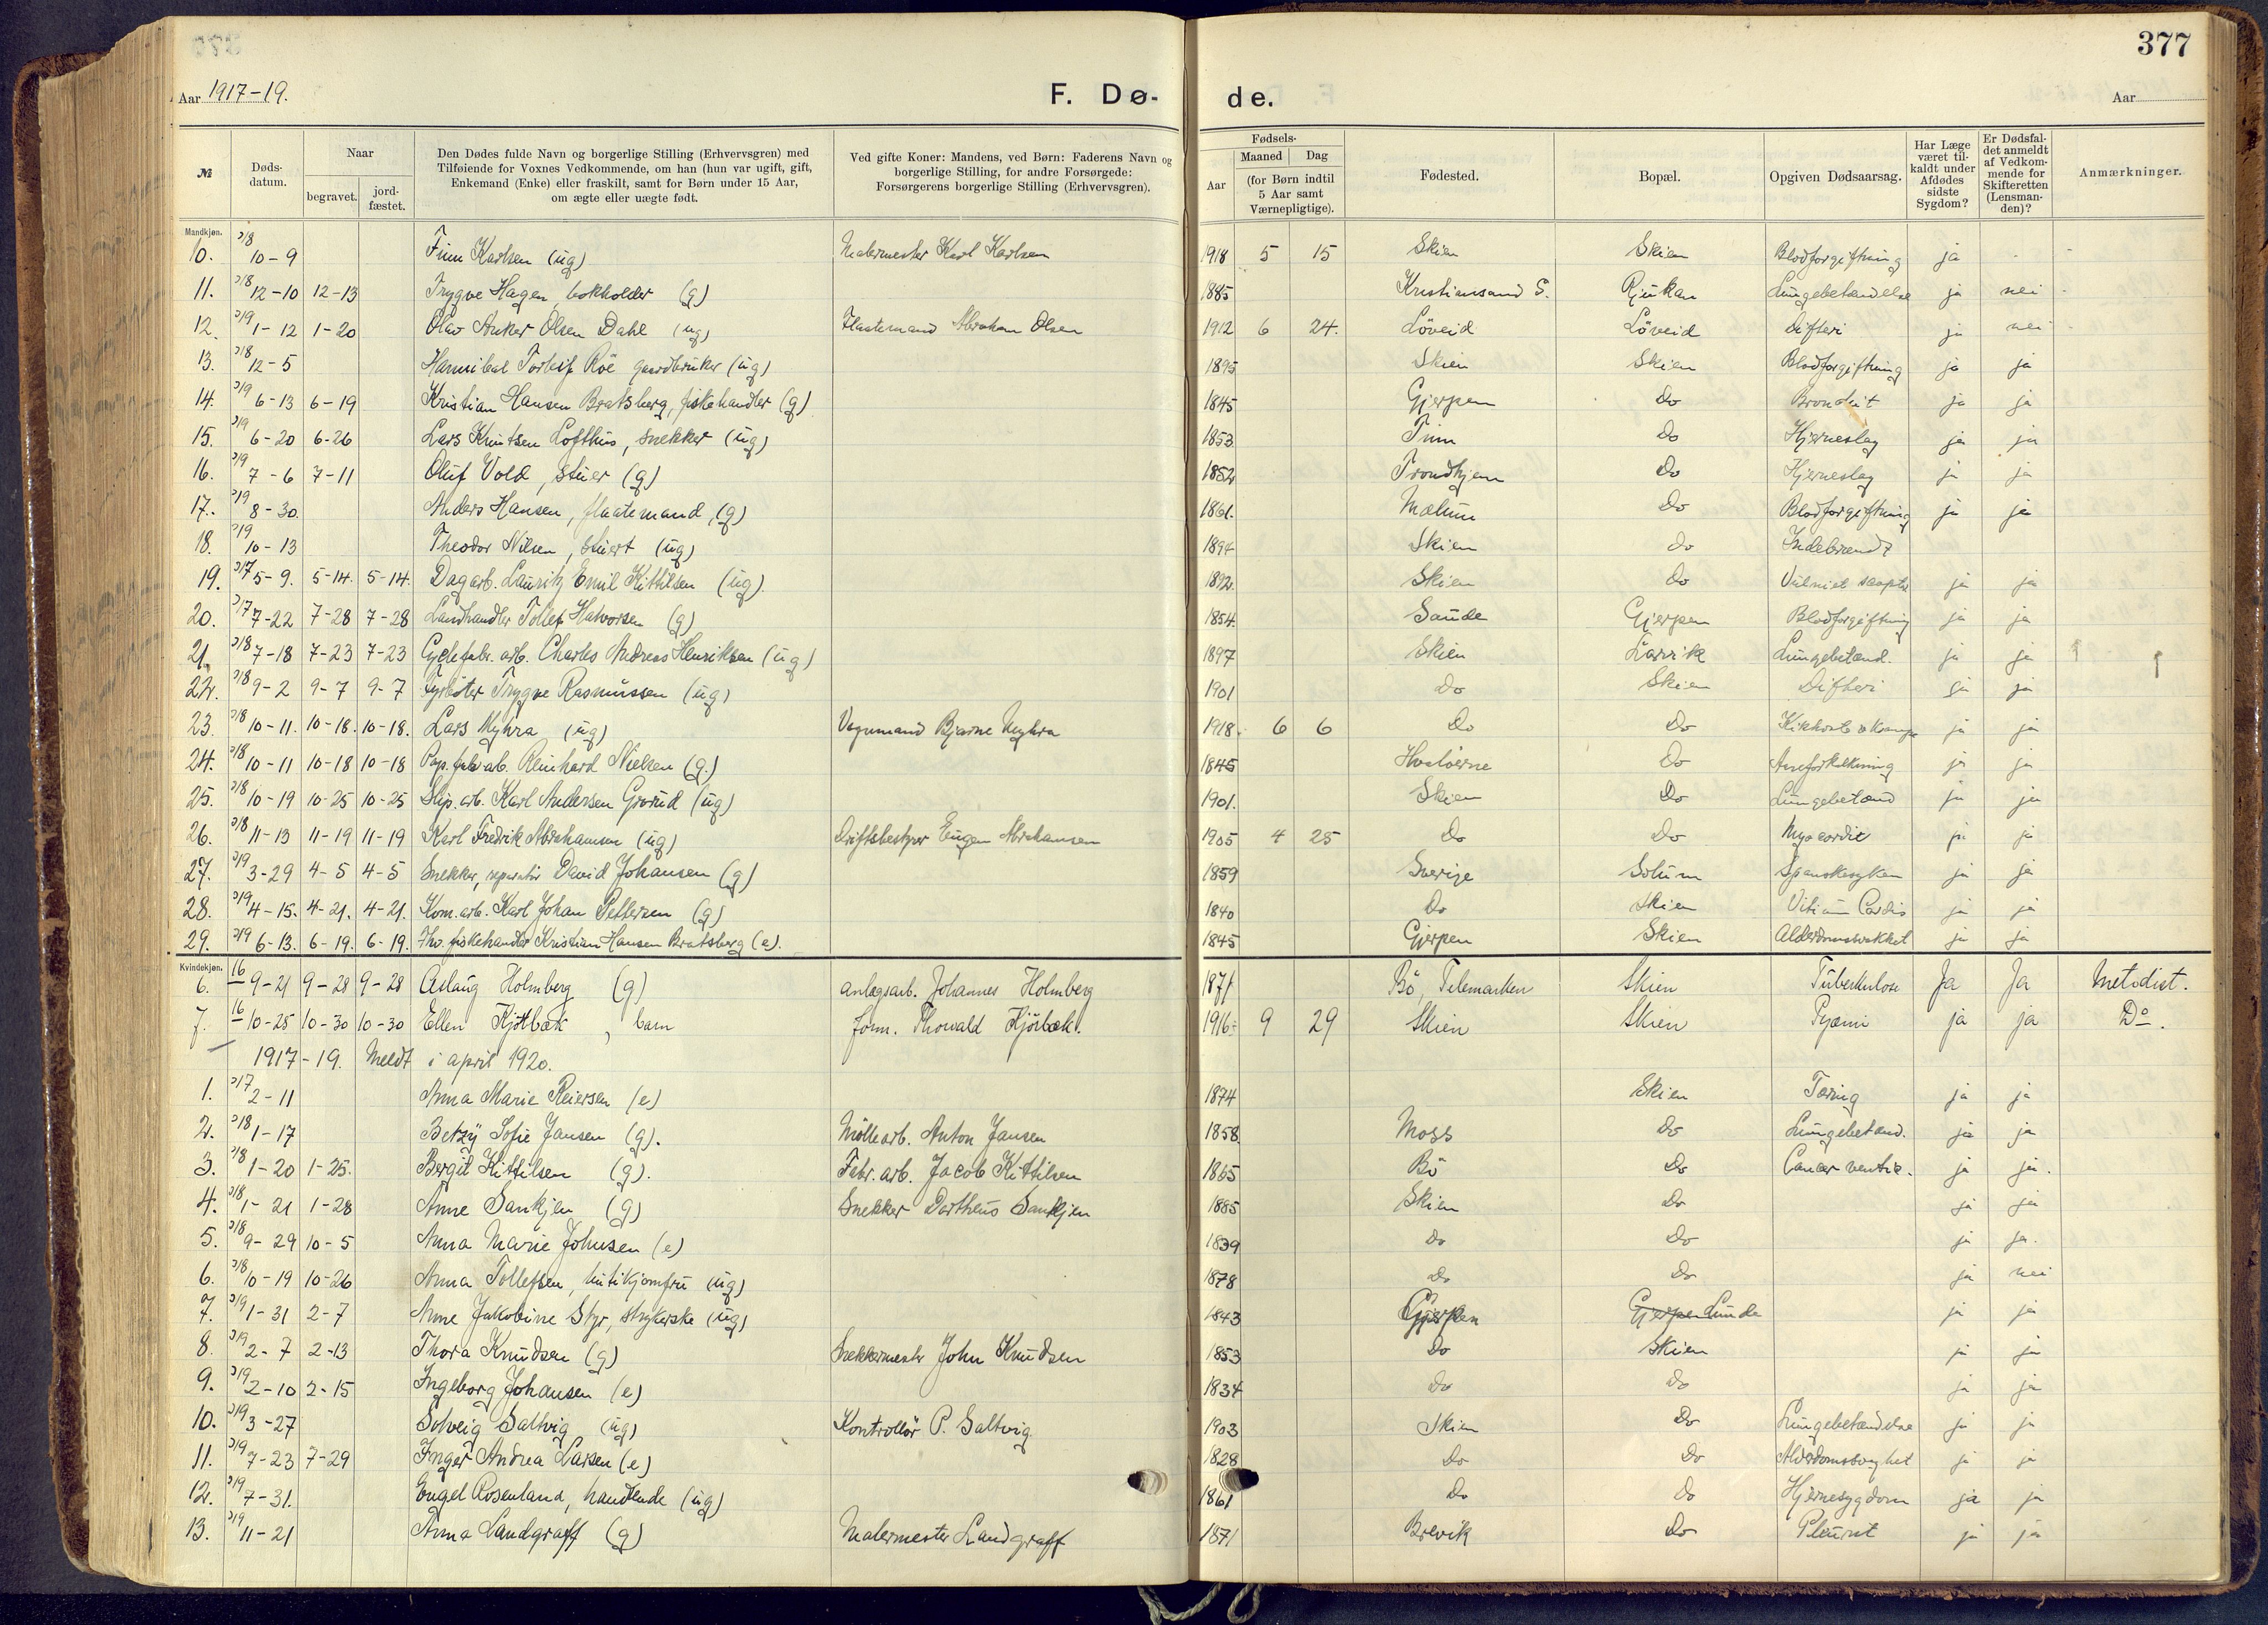 377
Aar 1917-19.
F. Dø-
de.
Aar
№
Døds-
datum.
Naar
begravet.
jord-
fæstet.
Den Dødes fulde Navn og borgerlige Stilling (Erhvervsgren) med
Tilføiende for Voxnes Vedkommende, om han (hun var ugift, gift,
Enkemand (Enke) eller fraskilt, samt for Børn under 15 Aar,
om ægte eller uægte født.
Ved gifte Koner: Mandens, ved Børn: Faderens Navn og
borgerlige Stilling, for andre Forsørgede:
Forsørgerens borgerlige Stilling (Erhvervsgren).
Fødsels-
Aar
Maaned
Dag
(for Børn indtil
5 Aar samt
Værnepligtige).
Fødested.
Bopæl.
Opgiven Dødsaarsag.
Har Læge
været til-
kaldt under
Afdødes
sidste
Sygdom?
Er Dødsfal-
det anmeldt
af Vedkom-
mende for
Skifteretten
(Lensman-
den)?
Anmærkninger.
Mandkjøn.
10. 18 10-9 Finn Karlsen (ug) Malermester Karl Karlsen 1918 5 15 Skien Skien Blodforgiftning ja
11. 18 12-10 12-13 Trygve Hagen, bokholder (g) 1885 Kristiansand S. Rjukan Lungebetændelse ja nei
12. 19 1-12 1-20 Olav Anker Olsen Dahl (ug) Flaatemand Abraham Olsen 1912 6 24. Löveid Löveid Difteri ja nei
13. 18 12-5 Hannibal Torleif Röe gaardbruker (ug) 1895 Skien Skien Blodforgiftning ja ja
14. 19 6-13 6-19 Kristian Hansen Bratsberg, fiskehandler (g) 1845 Gjerpen Do Bronchit ja ja
15. 19 6-20 6-26 Lars Knutsen Lofthus, snekker (ug) 1853 Tinn Do Hjerneslag ja ja
16. 19 7-6 7-11 Oluf Vold, stuer (g) 1852 Trondhjem Do Hjerneslag ja ja
17. 19 8-30. Anders Hansen, flaatemand, (g) 1861. Mælum Do Blodforgiftning ja ja
18. 19 10-13 Theodor Nilsen, stuert (ug) 1894 Skien do Indebrændt
19. 17 5-9. 5-14. 5-14. Dagarb. Lauritz Emil Kittilsen (ug). 1892. Skien Do ja ja
20. 17 7-22 7-28 7-28 Landhandler Tollef Halvorsen (g) 1854. Saude Gjerpen Blodforgiftning ja ja
21. 18 7-18 7-23 7-23 Cyclefabr. arb. Charles Andreas Henriksen (ug) 1897 Skien Larvik Lungebetænd. ja ja
22. 18 9-2 9-7 9-7 Fyrböter Trygve Rasmussen (ug) 1901 Do Skien Difteri ja ja
23. 18 10-11. 10-18. 10-18. Lars Myhra (ug) Vognmand Bjarne Myhra 1918. 6 6 Do Do Kikhoste o krampe ja ja
24. 18 10-11 10-18 10-18 Pap. fab arb. Reinhard Nielsen (g.) 1845 Hvaløerne Do Aareforkalkning ja ja
25. 18 10-19 10-25 10-25 Slip. arb. Karl Andersen Grorud (ug) 1901. Skien Do Lungebetænd ja ja
26. 18 11-13 11-19 11-19 Karl Fredrik Abrahamsen (ug) Driftsbestyrer Eugen Abrahamsen 1905 4 25 Do Do Myocardit ja ja
27. 19 3-29 4-5 4-5 Snekker, reparatör David Johansen (g) 1859 Sverige Solum Spanskesyken ja ja
28. 19 4-15. 4-21. 4-21. Kom. arb. Karl Johan Pettersen (g) 1840 Do Skien Vitium Cordis ja ja
29. 19 6-13. 6-19. 6-19. Fhv. fiskehandler Kristian Hansen Bratsberg (e). 1845 Gjerpen Skien Alderdomssvakhet ja ja
Kvindekjøn.
6. 16 9-21 9-28 9-28 Aslaug Holmberg (g) anlægsarb. Johannes Holmberg 1871. Bö, Telemarken Skien Tuberkulose Ja Ja Metodist.
7. 16 10-25 10-30 10-30 Ellen Kjörbæk, barn form. Thorvald Kjörbæk. 1916 9 29 Skien Skien Pyæmi ja ja Do.
1917-19. Meldt i april 1920.
1. 17 2-11 Anna Marie Reiersen (e) 1874 Skien Tæring ja ja
2. 18 1-17 Betzy Sofie Jansen (g). Möllearb. Anton Jansen 1858 Moss Do Lungebetænd. ja ja
3. 18 1-20 1-25. Bergit Kittilsen (g). Fabr. arb. Jacob Kittilsen 1865 Bö Do Cancer ventric. ja ja.
4. 18 1-21 1-28 Anne Sankjen (g) Snekker Dortheus Sankjen 1885 Skien Do ja ja
5. 18 9-29 10-5 Anna Marie Johnsen (e) 1839 do Do ja ja.
6. 18 10-19 10-26 Anna Tollefsen, butikjomfru (ug) 1878 Do Do ja nei
7. 19 1-31 2-7 Anne Jakobine Styr, strykerske (ug) 1843 Gjerpen Gjerpen Lunde ja ja
8. 19 2-7 2-13 Thora Knudsen (g) Snekkermester John Knudsen 1853 Do Skien ja ja
9. 19 2-10 2-15 Ingeborg Johansen (e) 1834 do Do ja ja
10. 19 3-27 Solveig Saltvig (ug) Kontrollör P. Saltvig 1903 Skien Do Lungebetændelse ja ja
11. 19 7-23 7-29 Inger Andrea Larsen (e) 1828 Do Do ja ja
12. 19 7-31. Engel Rosenland, handlende (ug) 1861 Do do Hjernesygdom ja ja
13. 19 11-21 Anna Landgraff (g) Malermester Landgraff 1871 Brevik Do Pleurit ja ja